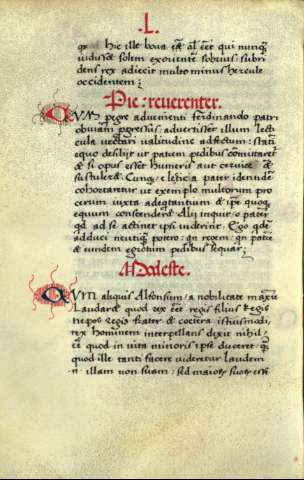 .L.
qꝫ hic ille bona etā al' eēt qui nunq̄
uidisset solem exorientē sobrius: subri
dens rex adiecit multo minus hercule
occidentem:
Pie: reuerenter.
CVM Rege aduenienti ferdinando patri
obuiam ꝓgressus, aduertisset illum lect
icula uectari ualitudine adfectum: statī
equo desiliit ut patrem pedibus comitaret
& si opus esset humeris aut ceruice
sustuleret. Cunqꝫ e lectica pater identidē
cohortaretur ut exemplo multorum pro
cerum iuxta adequitantium & ipse quoqꝫ
equum conscenderet. Alii inquit o pater
qd ad se attinet ipsi uiderint. Ego qdem
adduci neutiqꝫ potero: qn regem: qn patrē
& eundem egrotum pedibus sequar;
Modeste.
QVM aliquis Alfonsum a nobilitate maxīe
Laudaret quod rex eēt regis filius Regis
nepos Regis frater & cetera istiusmodi,
rex hominem interpellans dixit nihil
eē quod in uita minoris ipse duceret q̄
quod ille tanti facere uideretur Laudem
n. illam non suam: sed maiorꝫ suorꝫ esse